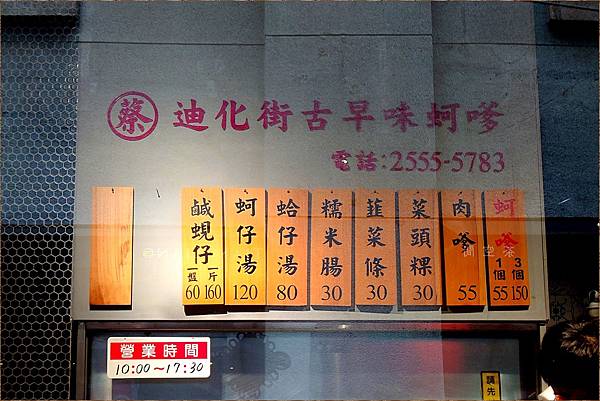 蔡 迪化街古早味蚵嗲
電話:2555-5783
蚵嗲 1個55 3個150
肉嗲 55
菜頭粿 30
韮菜條 30
糯米腸 30
蛤仔湯 80
蚵仔湯 120
鹹蜆仔 60 一斤160
營業時間
10:00~17:30
請先